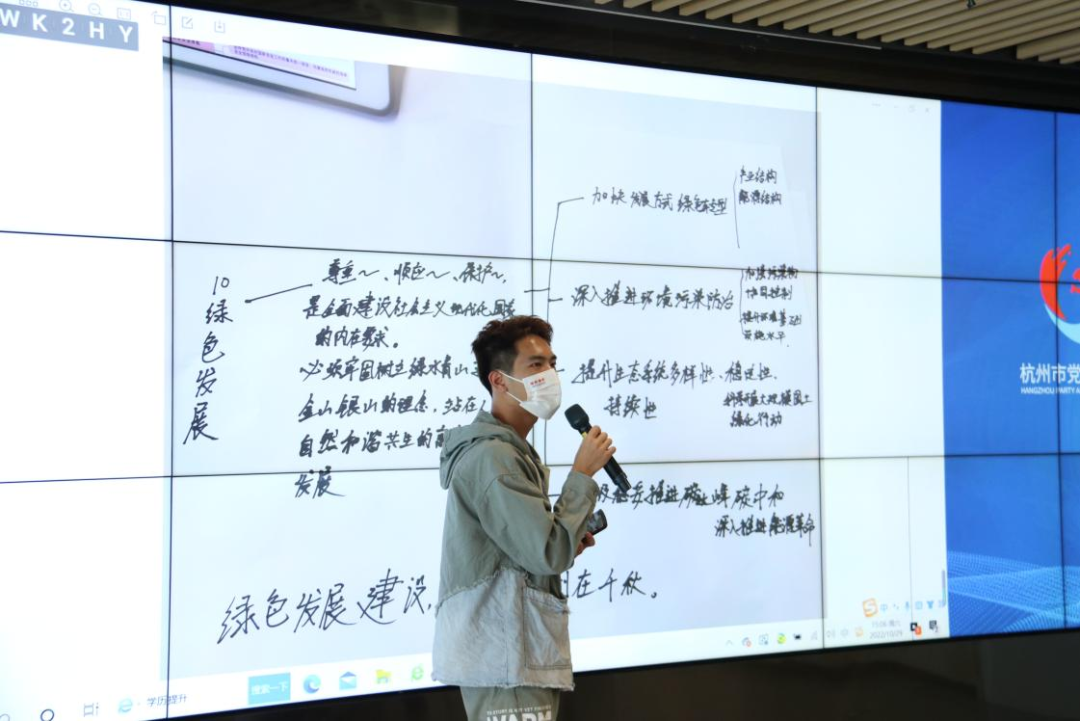 WK2HY
加快发展方式绿色转型
产业结构
能源结构
10
绿色发展
尊重~、顺应~、保护~,
是全面建设社会主义现代化国家
的内在要求。
必须牢固树立绿水青山
金山银山的理念,站在
自然和谐共生的高
发展
深入推进环境污染防治
加强污染物
协同控制
提升环境基础
设施水平.
提升生态系统多样性、稳定性、
持续性
绿化行动
推进碳达峰碳中和
深入推进能源革命
绿色发展建设,
在千秋。
杭州市党
HANGZHOU PARTY
搜索一下
学历提升
2022/10/29
WARM